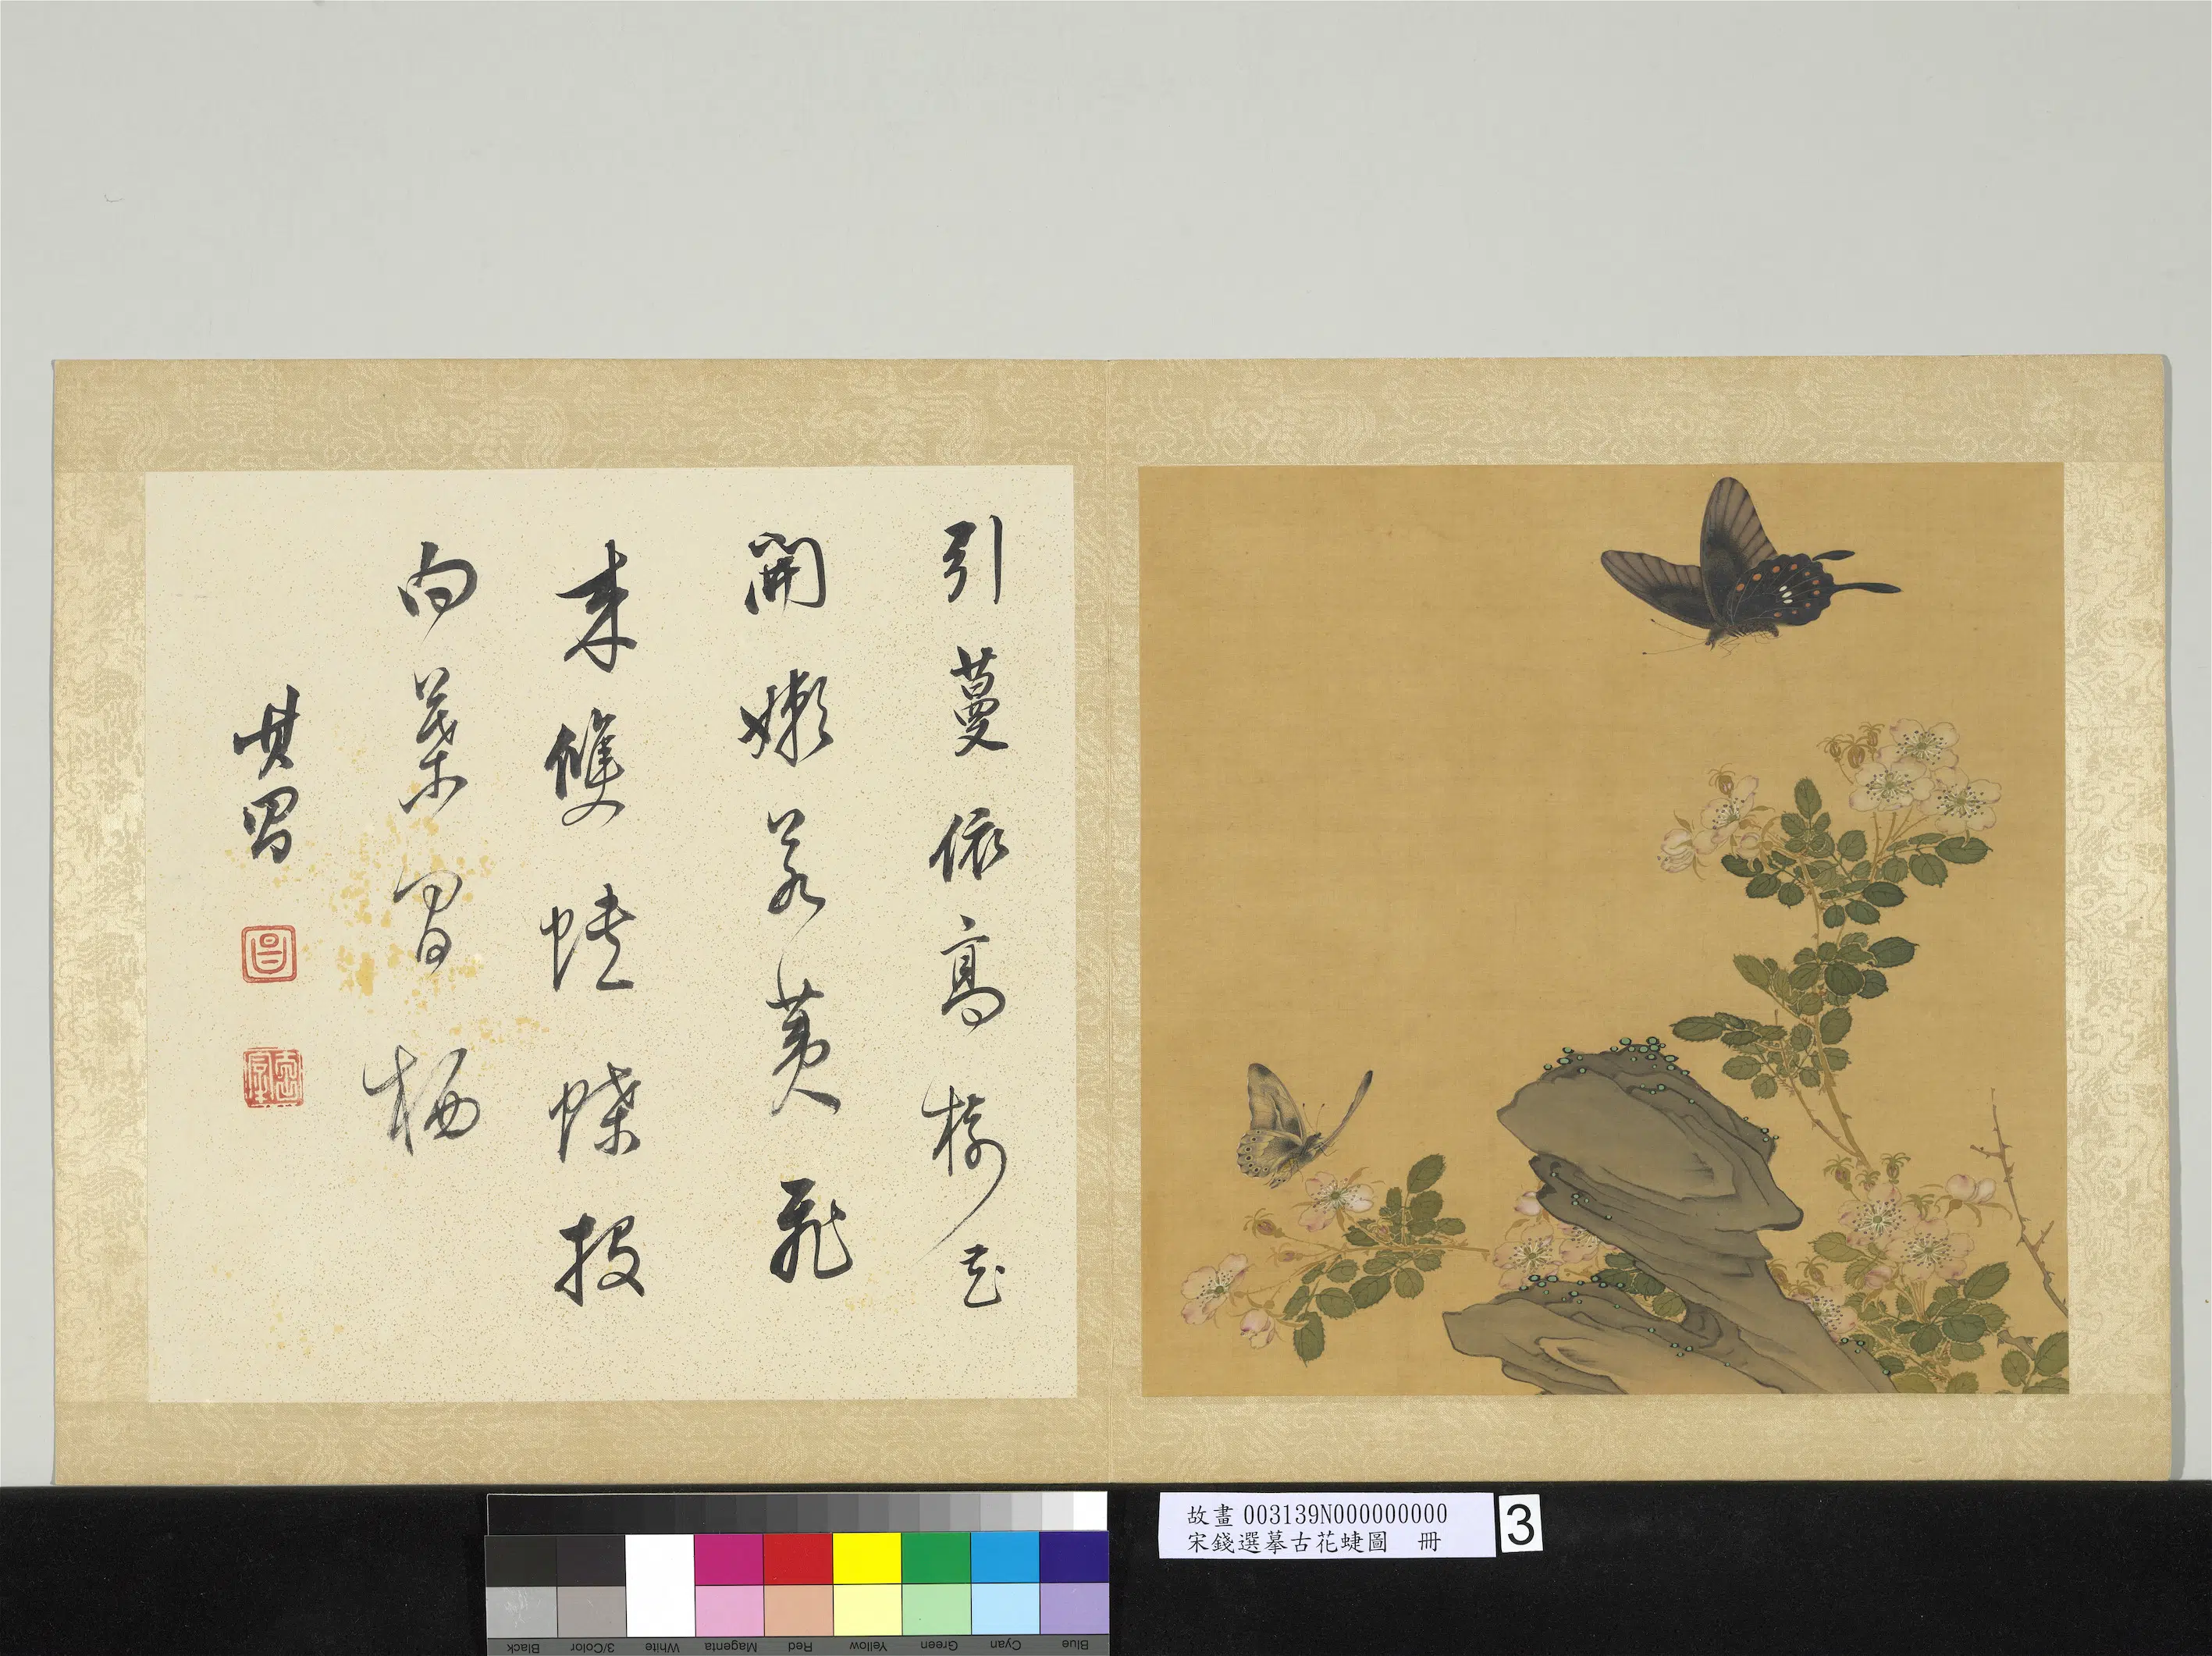 引蔓依高樹花
開嫩若荑飛
來雙蛺蝶投
向葉間栖
其昌
昌
故畫 003139N000000000
宋錢選摹古花蜨圖 冊
3
Black
3/Color
White
Magenta
Red
Yellow
Green
Cyan
Blue